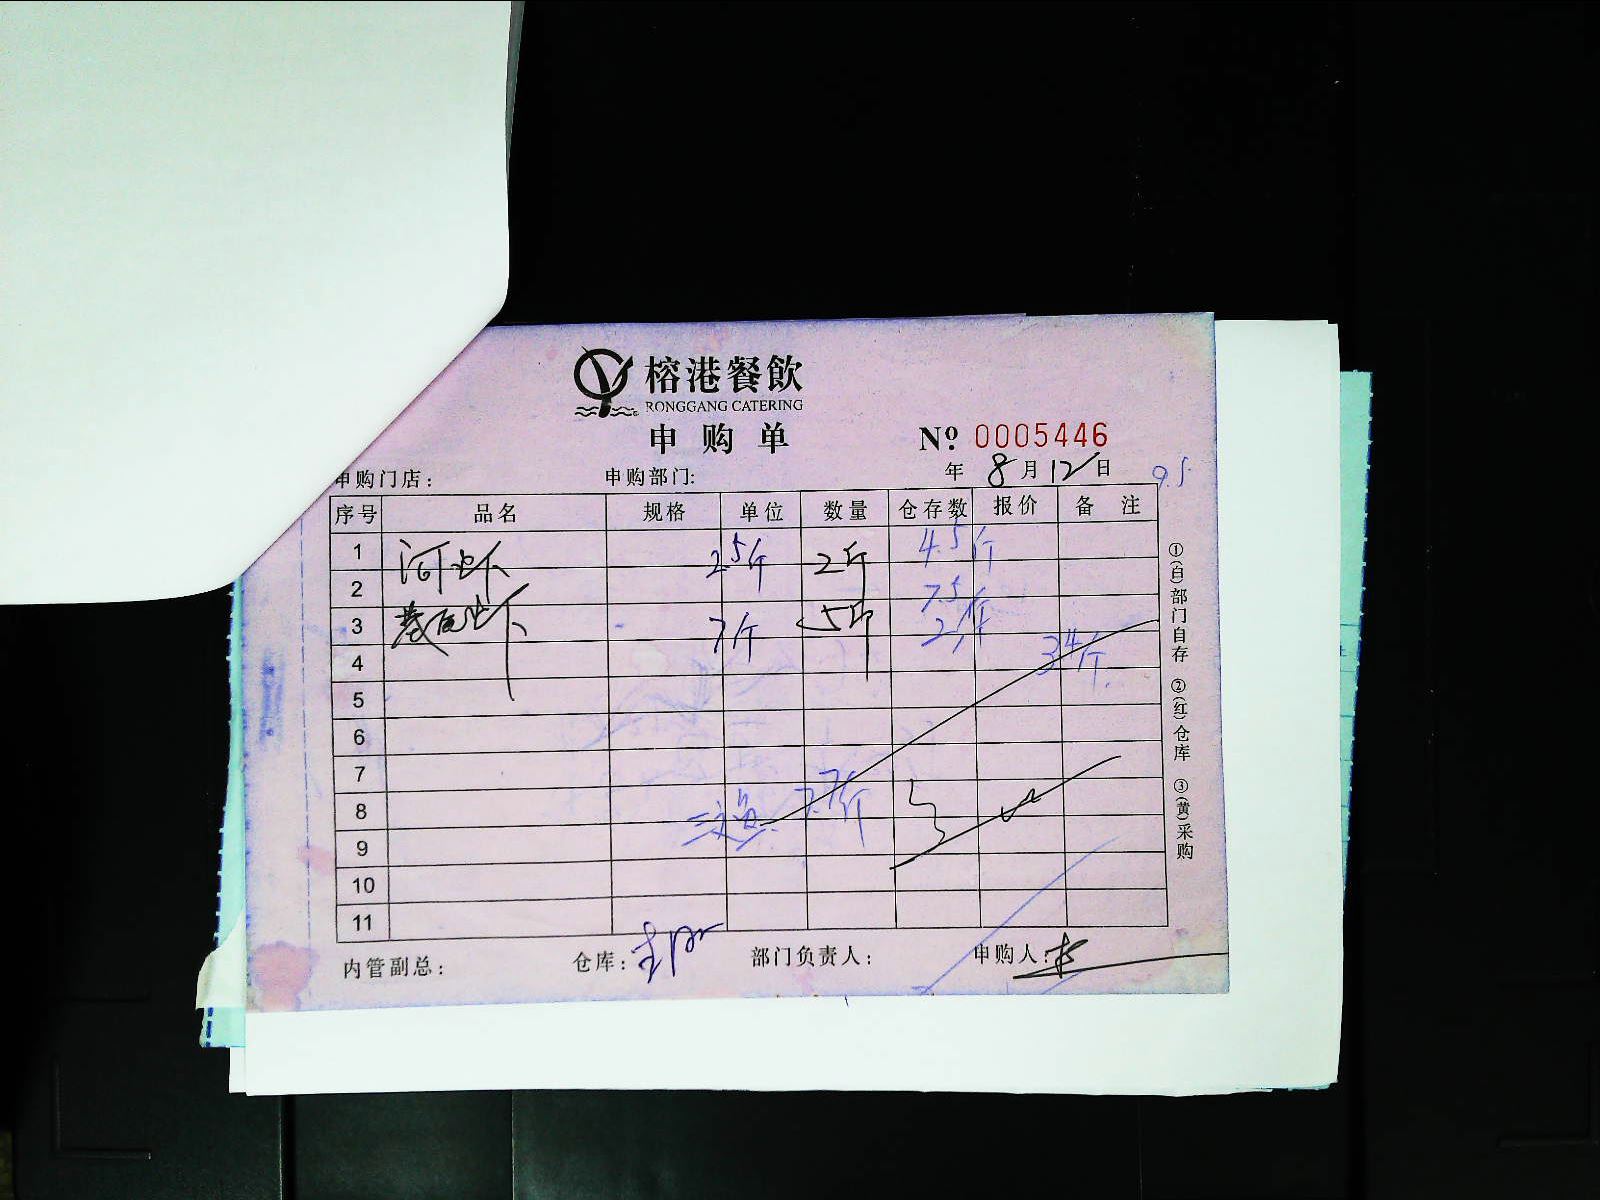 榕港餐飲
RONGGANG CATERING
申购单
Nº 0005446
申购门店： 申购部门: 年 8月12日 9.5
序号 品名 规格 单位 数量 仓存数 报价 备注
1 河虾 2.5斤 2斤 4.5斤
2 7.5斤
3 7斤 5斤 2斤
4 34斤
5
6
7
8 三文鱼 7.7斤
9
10
11
内管副总： 仓库： 部门负责人： 申购人：
①(白)部门自存 ②(红)仓库 ③(黄)采购